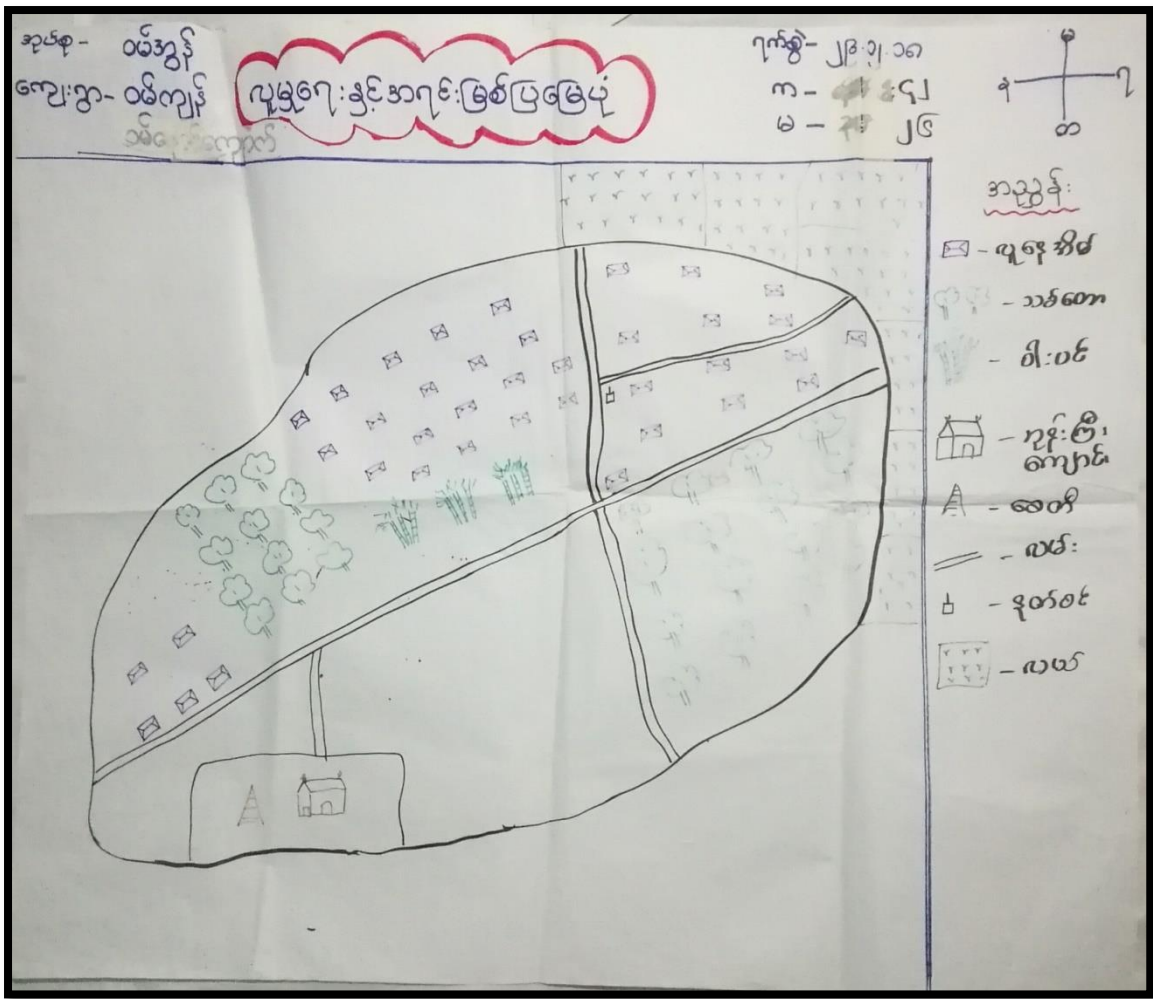 အုပ်စု- ဝမ်အွန်
ကျေးရွာ- ဝမ်ကျန်
လူမှုရေးနှင့်အရင်းမြစ်ပြမြေပုံ
ရက်စွဲ-
က - ၄၂
မ - ၂၆
မ
န
ရ
တ
အညွှန်း
- လူနေအိမ်
- သစ်တော
- ဝါးပင်
- ဘုန်းကြီး
ကျောင်း
- စေတီ
- လမ်း
- နတ်စင်
- လယ်